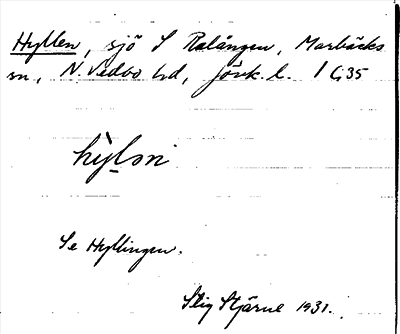 Hyllen, sjö S Ralången, Marbäcks
sn, N. Vedbo hd, jönk. l. 1 G 35
hỳlən
Se Hyllingen.
Stig Stjärne 1931.